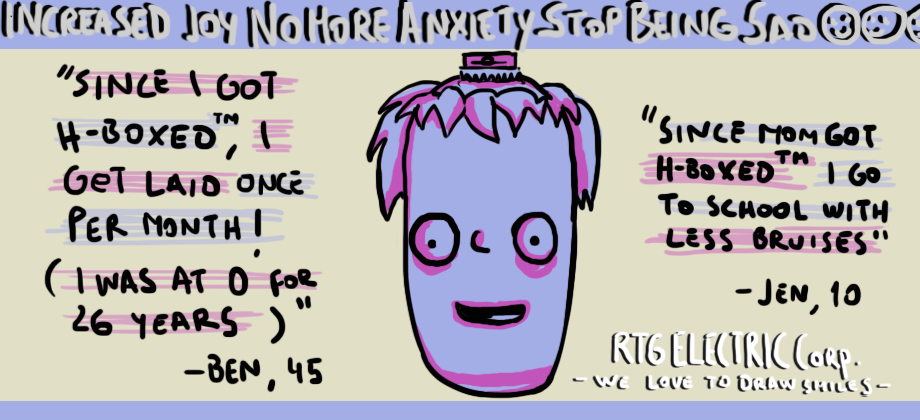 INCREASED JOY NO MORE ANXIETY STOP BEING SAD
"SINCE I GOT
H-BOXED™, I
GET LAID ONCE
PER MONTH!
(I WAS AT 0 FOR
26 YEARS)"
-BEN, 45
"SINCE MOM GOT
H-BOXED™ I GO
TO SCHOOL WITH
LESS BRUISES"
-JEN, 10
RTG ELECTRIC CORP.
- WE LOVE TO DRAW SMILES -